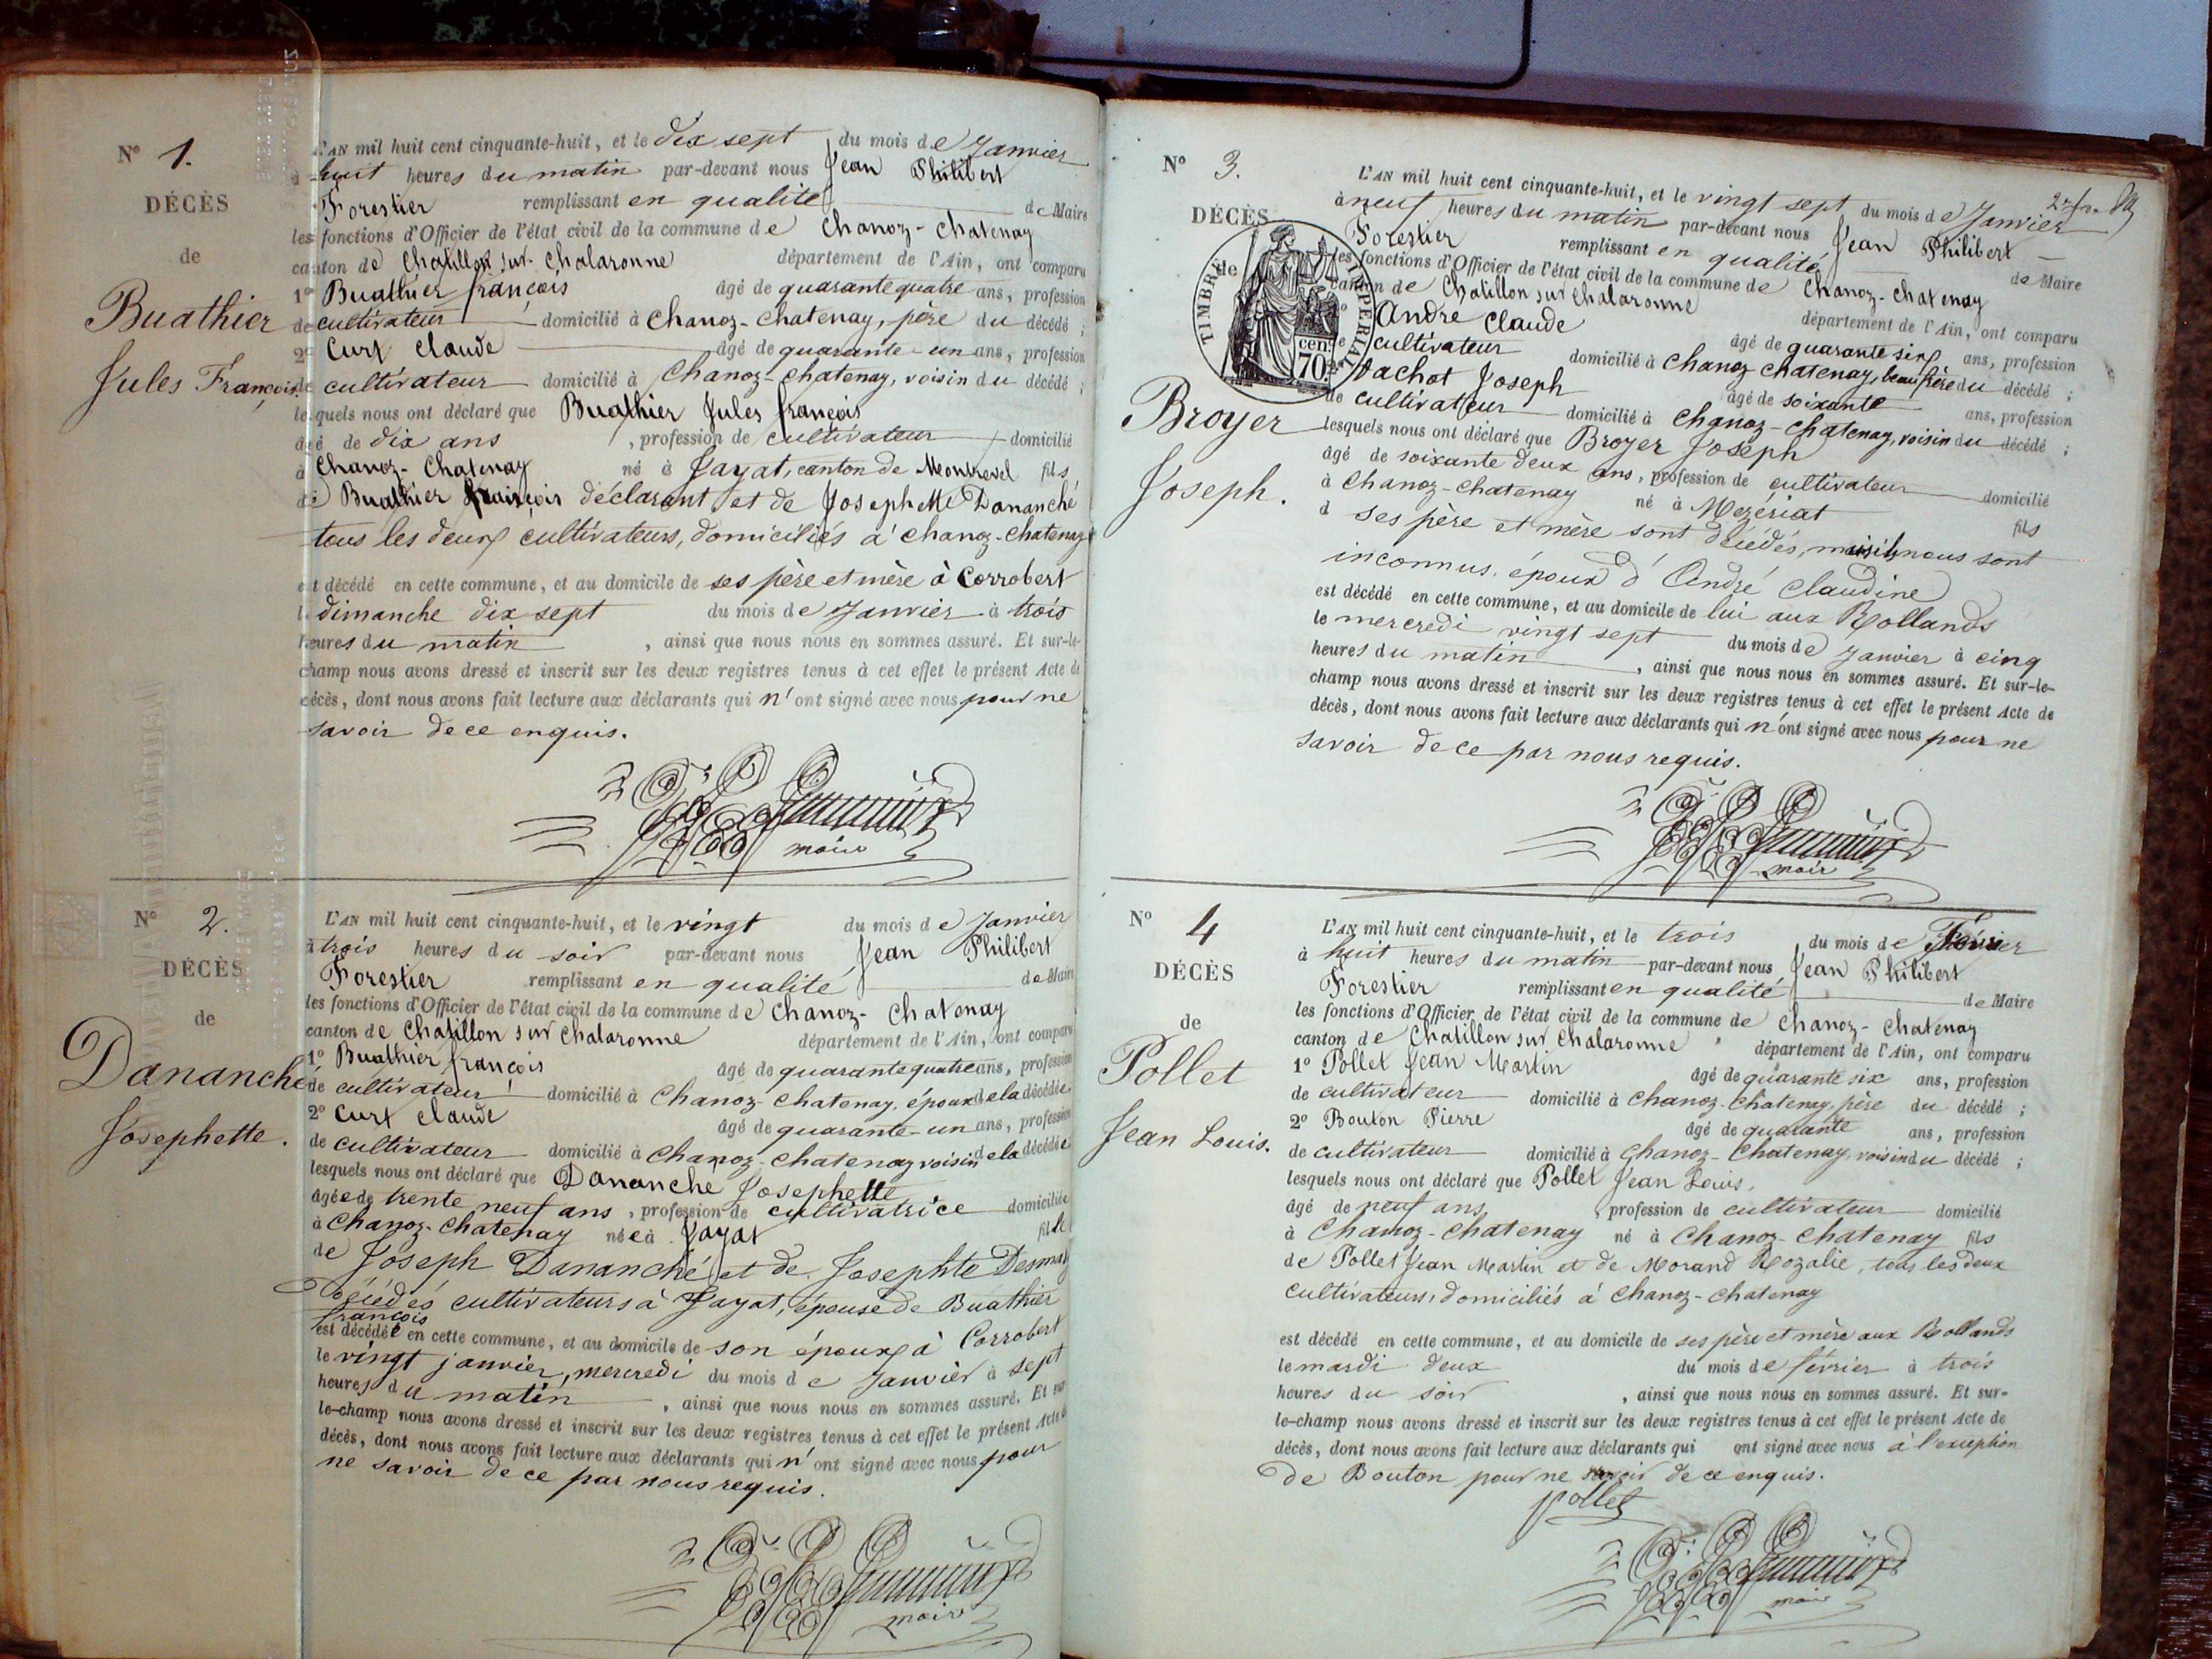 N° 1.
DÉCÈS
de
Buathier
Jules François.
L'AN mil huit cent cinquante-huit, et le dix sept du mois de Janvier
à huit heures du matin par-devant nous Jean Philibert
Forestier remplissant en qualité de Maire
les fonctions d'Officier de l'état civil de la commune de Chanoz-Chatenay
canton de Chatillon sur Chalaronne département de l'Ain, ont comparu
1° Buathier françois âgé de quarante quatre ans, profession
de cultivateur domicilié à Chanoz-Chatenay, père du décédé ;
2° Curt Claude âgé de quarante-un ans, profession
de cultivateur domicilié à Chanoz-Chatenay, voisin du décédé ;
lesquels nous ont déclaré que Buathier Jules françois
âgé de dix ans, profession de cultivateur domicilié
à Chanoz-Chatenay né à Jayat, canton de Montrevel fils
de Buathier françois déclarant et de Josephette Dananché
tous les deux cultivateurs, domiciliés à Chanoz-Chatenay
est décédé en cette commune, et au domicile de ses père et mère à Corrobert
le dimanche dix sept du mois de Janvier à trois
heures du matin, ainsi que nous nous en sommes assuré. Et sur-le-
champ nous avons dressé et inscrit sur les deux registres tenus à cet effet le présent Acte de
décès, dont nous avons fait lecture aux déclarants qui n'ont signé avec nous pour ne
savoir de ce enquis.
maire
N° 2.
DÉCÈS
de
Dananché
Josephette.
L'AN mil huit cent cinquante-huit, et le vingt du mois de Janvier
à trois heures du soir par-devant nous Jean Philibert
Forestier remplissant en qualité de Maire
les fonctions d'Officier de l'état civil de la commune de Chanoz-Chatenay
canton de Chatillon sur Chalaronne département de l'Ain, ont comparu
1° Buathier françois âgé de quarante quatre ans, profession
de cultivateur domicilié à Chanoz-Chatenay, époux de la décédée
2° Curt Claude âgé de quarante-un ans, profession
de cultivateur domicilié à Chanoz-Chatenay voisin de la décédée
lesquels nous ont déclaré que Dananche Josephette
âgée de trente neuf ans, profession de cultivatrice domiciliée
à Chanoz-Chatenay née à Jayat fille
de Joseph Dananché et de Josephte
Décédés cultivateurs à Jayat, épouse de Buathier
françois
est décédée en cette commune, et au domicile de son époux à Corrobert
le vingt janvier, mercredi du mois de Janvier à sept
heures du matin, ainsi que nous nous en sommes assuré. Et sur
le-champ nous avons dressé et inscrit sur les deux registres tenus à cet effet le présent Acte de
décès, dont nous avons fait lecture aux déclarants qui n'ont signé avec nous pour
ne savoir de ce par nous requis.
maire
N° 3.
DÉCÈS
de
TIMBRE IMPERIAL
70 cen.
Broyer
Joseph.
L'AN mil huit cent cinquante-huit, et le vingt sept du mois de Janvier
à neuf heures du matin par-devant nous Jean Philibert
Forestier remplissant en qualité de Maire
les fonctions d'Officier de l'état civil de la commune de Chanoz-Chatenay
canton de Chatillon sur Chalaronne département de l'Ain, ont comparu
André Claude âgé de quarante sinq ans, profession
cultivateur domicilié à Chanoz Chatenay, beau frère du décédé ;
Vachot Joseph âgé de soixante ans, profession
de cultivateur domicilié à Chanoz-Chatenay, voisin du décédé ;
lesquels nous ont déclaré que Broyer Joseph
âgé de soixante deux ans, profession de cultivateur domicilié
à Chanoz-Chatenay né à Mezériat fils
d ses père et mère sont décédés, mais ils nous sont
inconnus, époux d'André Claudine
est décédé en cette commune, et au domicile de lui aux Rollands
le mercredi vingt sept du mois de Janvier à cinq
heures du matin, ainsi que nous nous en sommes assuré. Et sur-le-
champ nous avons dressé et inscrit sur les deux registres tenus à cet effet le présent Acte de
décès, dont nous avons fait lecture aux déclarants qui n'ont signé avec nous pour ne
savoir de ce par nous requis.
maire
N° 4
DÉCÈS
de
Pollet
Jean Louis.
L'AN mil huit cent cinquante-huit, et le trois du mois de Février
à huit heures du matin par-devant nous Jean Philibert
Forestier remplissant en qualité de Maire
les fonctions d'Officier de l'état civil de la commune de Chanoz-Chatenay
canton de Chatillon sur Chalaronne département de l'Ain, ont comparu
1° Pollet Jean Martin âgé de quarante six ans, profession
de cultivateur domicilié à Chanoz-Chatenay, père du décédé ;
2° Bouton Pierre âgé de quarante ans, profession
de cultivateur domicilié à Chanoz-Chatenay, voisin du décédé ;
lesquels nous ont déclaré que Pollet Jean Louis,
âgé de neuf ans, profession de cultivateur domicilié
à Chanoz-Chatenay né à Chanoz-Chatenay fils
de Pollet Jean Martin et de Morand Rozalie, tous les deux
cultivateurs, domiciliés à Chanoz-Chatenay
est décédé en cette commune, et au domicile de ses père et mère aux Rollands
le mardi deux du mois de février à trois
heures du soir, ainsi que nous nous en sommes assuré. Et sur-
le-champ nous avons dressé et inscrit sur les deux registres tenus à cet effet le présent Acte de
décès, dont nous avons fait lecture aux déclarants qui ont signé avec nous à l'exception
de Bouton pour ne savoir de ce enquis.
Pollet
maire